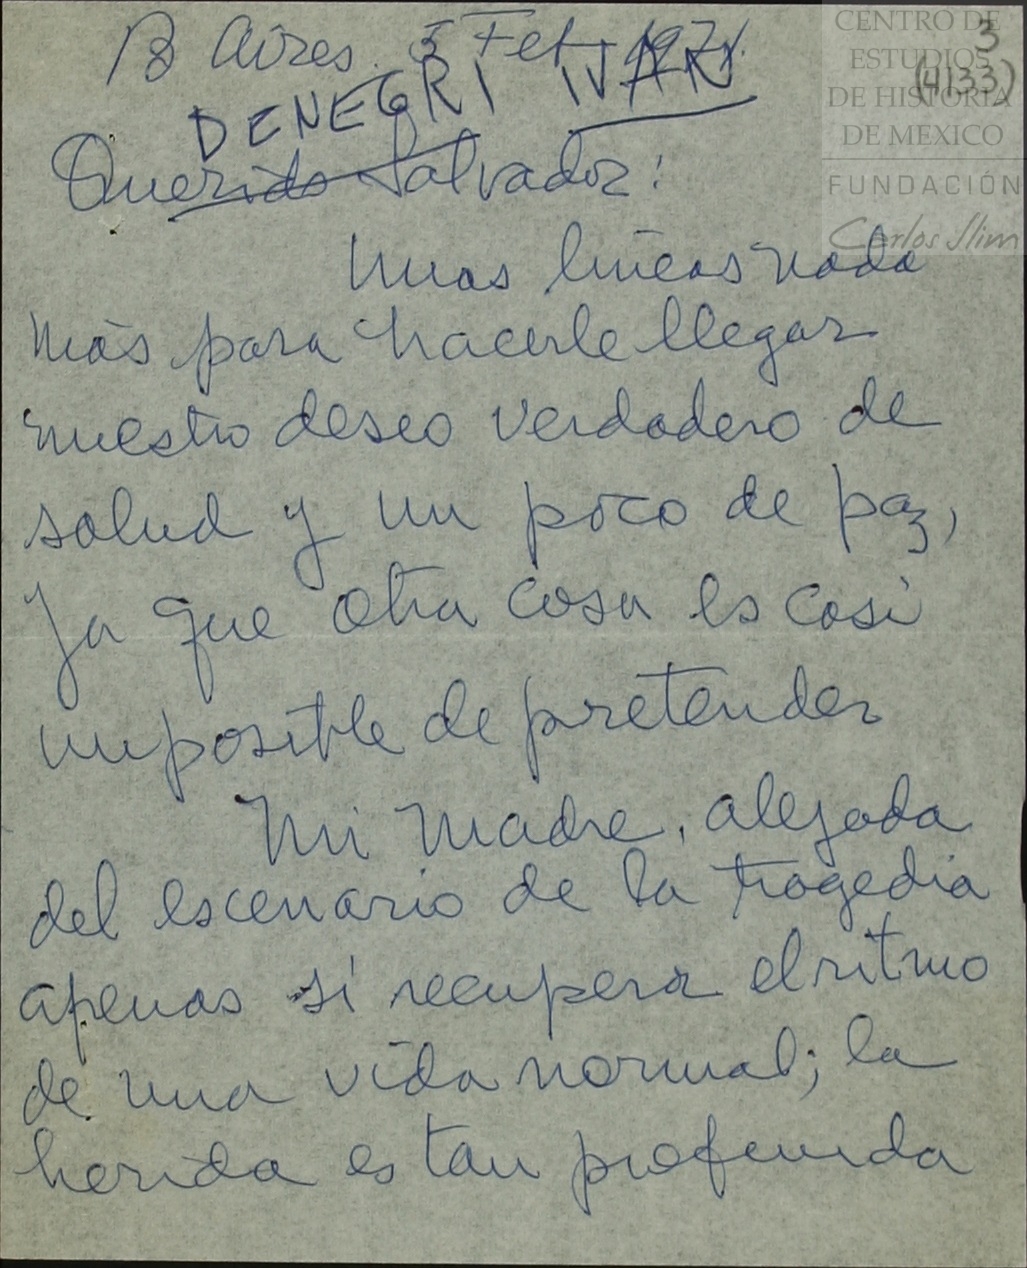 B Aires. 5 Feb, 1971.
DENEGRI IVAN
Querido Salvador:
Unas líneas nada
más para hacerle llegar
nuestro deseo verdadero de
salud y un poco de paz,
ya que otra cosa es casi
imposible de pretender
Mi madre, alejada
del escenario de la tragedia
apenas si recupera el ritmo
de una vida normal; la
herida es tan profunda
3
(4133)
CENTRO DE
ESTUDIOS
DE HISTORIA
DE MEXICO
FUNDACIÓN
Carlos Slim